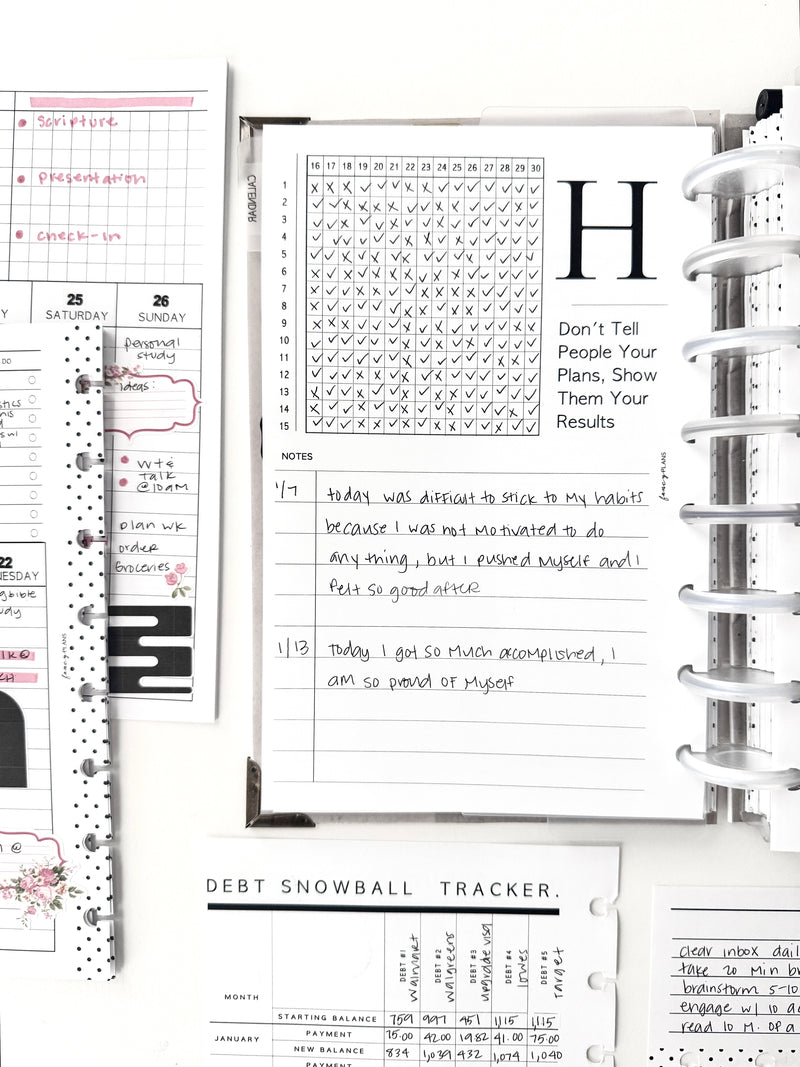 scripture
presentation
check-in
25
SATURDAY
26
SUNDAY
personal
study
ideas:
wt &
talk
@10am
plan wk
order
groceries
22
fancyPLANS
CALENDAR
16 17 18 19 20 21 22 23 24 25 26 27 28 29 30
1
2
3
4
5
6
7
8
9
10
11
12
13
14
15
H
Don't Tell
People Your
Plans, Show
Them Your
Results
fancyPLANS
NOTES
1/7 today was difficult to stick to my habits
because I was not motivated to do
anything, but I pushed myself and I
felt so good after
1/13 today I got so much accomplished, I
am so proud of myself
DEBT SNOWBALL TRACKER.
MONTH
DEBT #1 walmart
DEBT #2 walgreens
DEBT #3 upgrade visa
DEBT #4 lowes
DEBT #5 target
STARTING BALANCE 759 997 451 1,115 1,115
JANUARY PAYMENT 75.00 42.00 19.82 41.00 75.00
NEW BALANCE 834 1,039 432 1,074 1,040
PAYMENT
clear inbox dail
take 20 min br
brainstorm 5-10
engage w/ 10 ac
read 10 m. of a